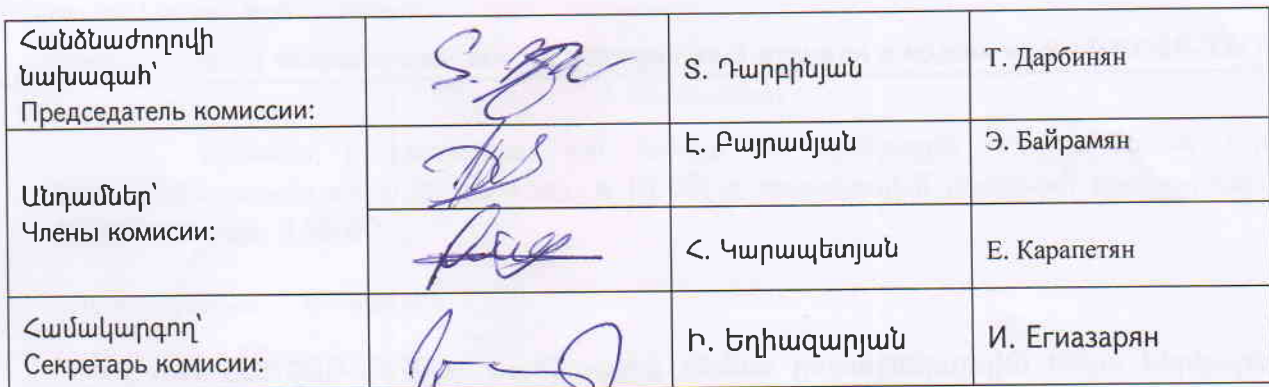 Հանձնաժողովի
նախագահ՝
Председатель комиссии:
Տ. Դարբինյան
Т. Дарбинян
Անդամներ՝
Члены комисии:
Է. Բայրամյան
Э. Байрамян
Հ. Կարապետյան
Е. Карапетян
Համակարգող՝
Секретарь комисии:
Ի. Եղիազարյան
И. Егиазарян